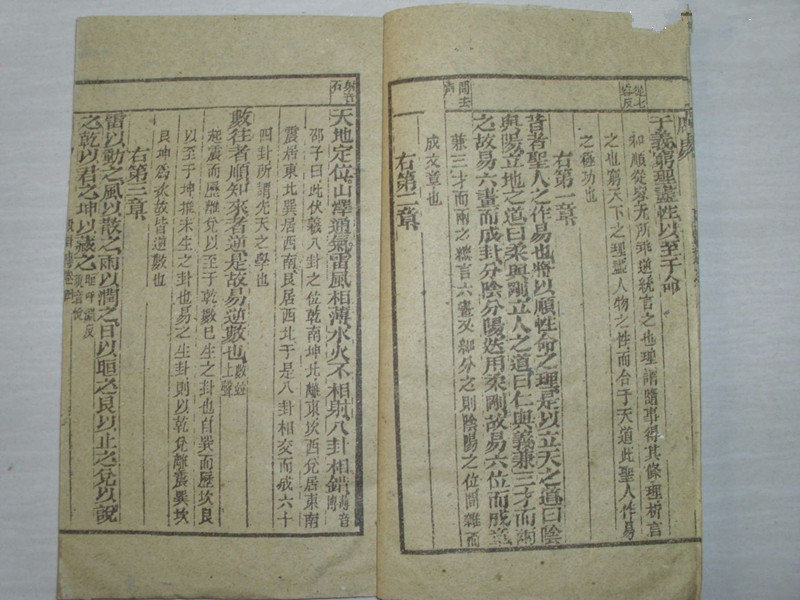 于義窮理盡性以至于命
和順從容无所乖逆統言之也理謂隨事得其條理析言
之也窮天下之理盡人物之性而合于天道此聖人作易
之極功也
右第一章
昔者聖人之作易也將以順性命之理是以立天之道曰陰
與陽立地之道曰柔與剛立人之道曰仁與義兼三才而兩
之故易六畫而成卦分陰分陽迭用柔剛故易六位而成章
兼三才而兩之總言六畫又細分之則陰陽之位間雜而
成文章也
右第二章
天地定位山澤通氣雷風相薄水火不相射八卦相錯薄音博
邵子曰此伏羲八卦之位乾南坤北離東坎西兌居東南
震居東北巽居西南艮居西北于是八卦相交而成六十
四卦所謂先天之學也
數往者順知來者逆是故易逆數也數並上聲
起震而歷離兌以至于乾數已生之卦也自巽而歷坎艮
以至于坤推未生之卦也易之生卦則以乾兌離震巽坎
艮坤爲次故皆逆數也
右第三章
雷以動之風以散之雨以潤之日以晅之艮以止之兌以說
之乾以君之坤以藏之